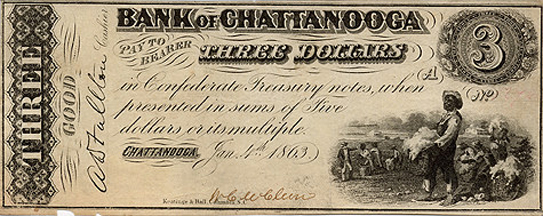 BANK OF CHATTANOOGA
PAY TO BEARER
THREE DOLLARS
3
A
No
in Confederate Treasury notes, when
presented in sums of Five
dollars or its multiple.
CHATTANOOGA, Jan. 4th 1863
THREE
GOOD
Cashier
Keatinge & Ball, Columbia, S.C.